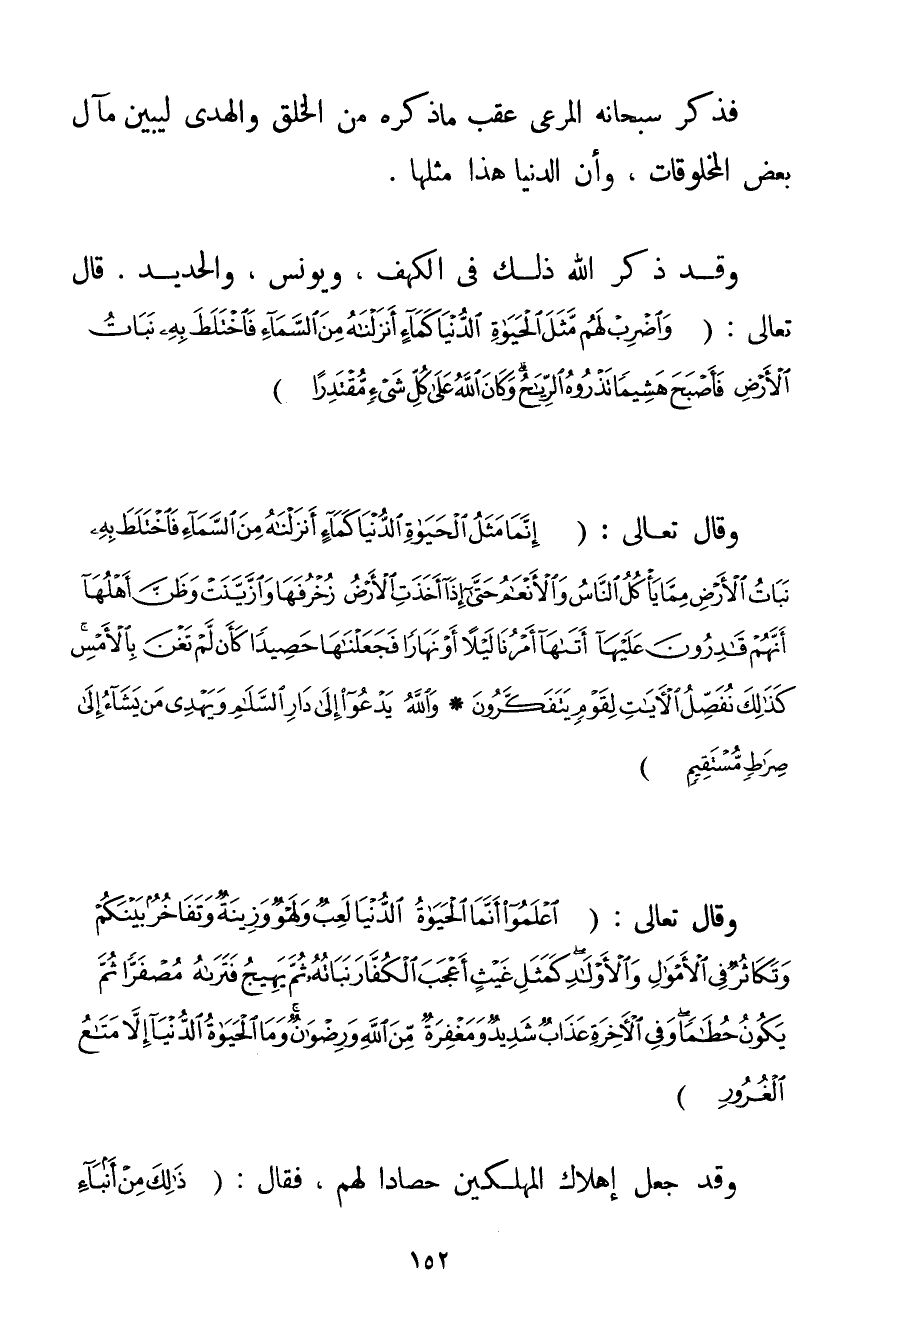 فذكر سبحانه المرعى عقب ماذكره من الخلق والهدى ليبين مآل
بعض المخلوقات ، وأن الدنيا هذا مثلها .
وقــد ذكر الله ذلـك فى الكهف ، ويونس ، والحديـد . قال
تعالى : ( وَٱضْرِبْ لَهُم مَّثَلَ ٱلْحَيَوٰةِ ٱلدُّنْيَا كَمَآءٍ أَنزَلْنَٰهُ مِنَ ٱلسَّمَآءِ فَٱخْتَلَطَ بِهِۦ نَبَاتُ
ٱلْأَرْضِ فَأَصْبَحَ هَشِيمًا تَذْرُوهُ ٱلرِّيَٰحُ ۗ وَكَانَ ٱللَّهُ عَلَىٰ كُلِّ شَىْءٍ مُّقْتَدِرًا )
وقال تعـالى : ( إِنَّمَا مَثَلُ ٱلْحَيَوٰةِ ٱلدُّنْيَا كَمَآءٍ أَنزَلْنَٰهُ مِنَ ٱلسَّمَآءِ فَٱخْتَلَطَ بِهِۦ
نَبَاتُ ٱلْأَرْضِ مِمَّا يَأْكُلُ ٱلنَّاسُ وَٱلْأَنْعَٰمُ حَتَّىٰٓ إِذَآ أَخَذَتِ ٱلْأَرْضُ زُخْرُفَهَا وَٱزَّيَّنَتْ وَظَنَّ أَهْلُهَآ
أَنَّهُمْ قَٰدِرُونَ عَلَيْهَآ أَتَىٰهَآ أَمْرُنَا لَيْلًا أَوْ نَهَارًا فَجَعَلْنَٰهَا حَصِيدًا كَأَن لَّمْ تَغْنَ بِٱلْأَمْسِ ۚ
كَذَٰلِكَ نُفَصِّلُ ٱلْآيَٰتِ لِقَوْمٍ يَتَفَكَّرُونَ * وَٱللَّهُ يَدْعُوٓا۟ إِلَىٰ دَارِ ٱلسَّلَٰمِ وَيَهْدِى مَن يَشَآءُ إِلَىٰ
صِرَٰطٍ مُّسْتَقِيمٍ )
وقال تعالى : ( ٱعْلَمُوٓا۟ أَنَّمَا ٱلْحَيَوٰةُ ٱلدُّنْيَا لَعِبٌ وَلَهْوٌ وَزِينَةٌ وَتَفَاخُرٌۢ بَيْنَكُمْ
وَتَكَاثُرٌ فِى ٱلْأَمْوَٰلِ وَٱلْأَوْلَٰدِ ۖ كَمَثَلِ غَيْثٍ أَعْجَبَ ٱلْكُفَّارَ نَبَاتُهُۥ ثُمَّ يَهِيجُ فَتَرَىٰهُ مُصْفَرًّا ثُمَّ
يَكُونُ حُطَٰمًا ۖ وَفِى ٱلْآخِرَةِ عَذَابٌ شَدِيدٌ وَمَغْفِرَةٌ مِّنَ ٱللَّهِ وَرِضْوَٰنٌ ۚ وَمَا ٱلْحَيَوٰةُ ٱلدُّنْيَآ إِلَّا مَتَٰعُ
ٱلْغُرُورِ )
وقد جعل إهلاك المهلـكين حصادا لهم ، فقال : ( ذَٰلِكَ مِنْ أَنۢبَآءِ
١٥٢